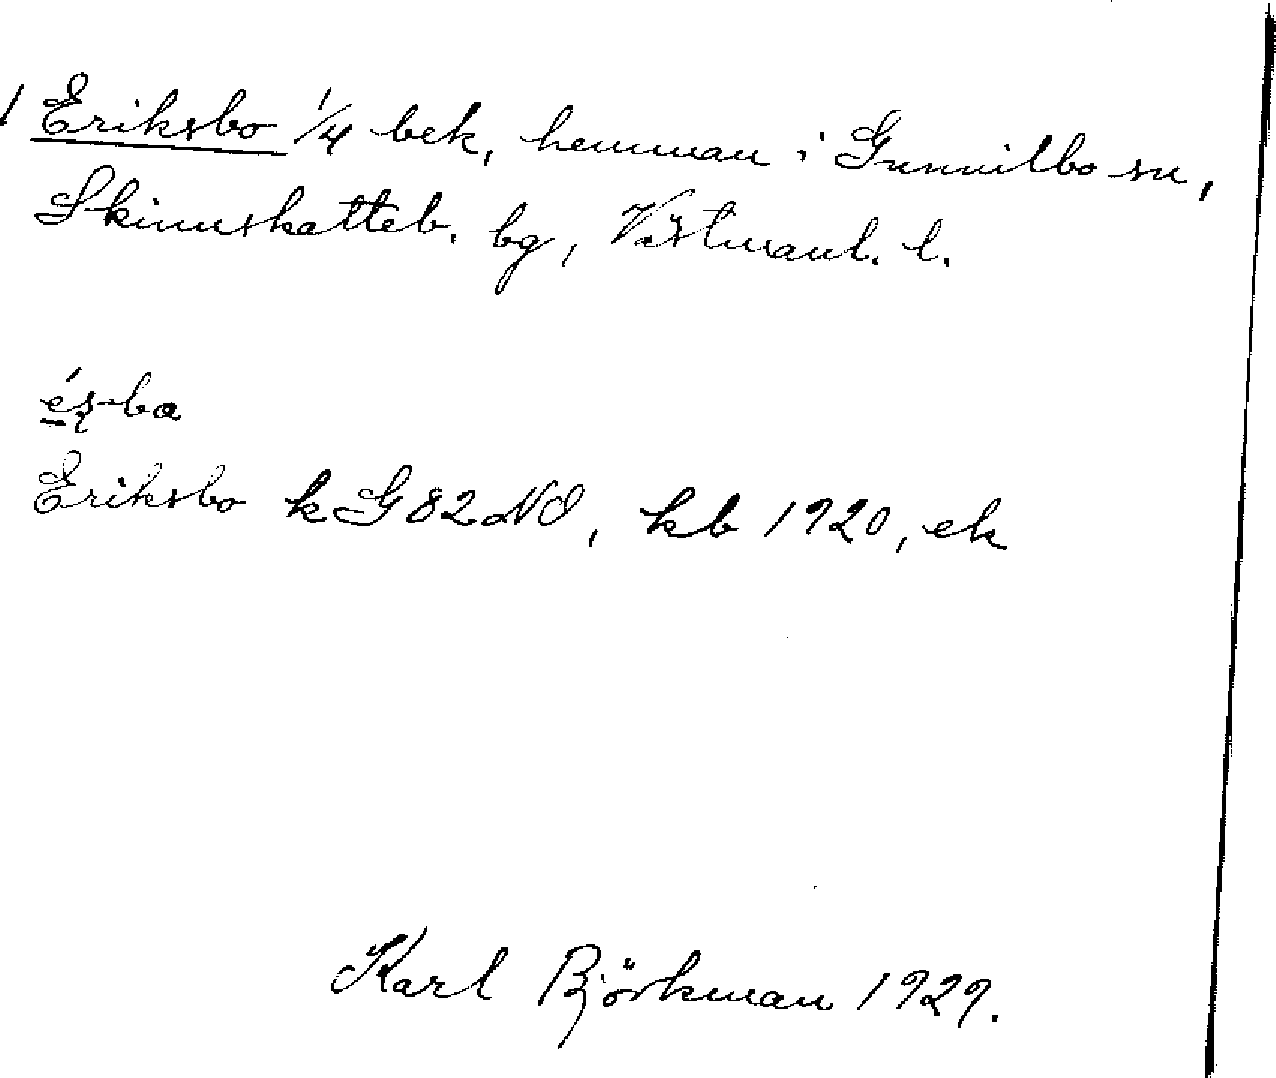 / Eriksbo 1/4 bek, hemman i Gunnilbo sn,
Skinnskatteb. bg, Västmanl. l.
és-ba
Eriksbo k G 82 NO, kb 1920, ek
Karl Björkman 1929.